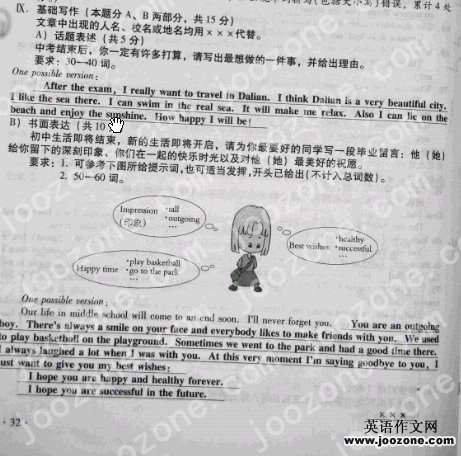 错误，累计4处
IX. 基础写作（本题分A、B两部分，共15分）
文章中出现的人名、校名或地名均用×××代替。
A）话题表述（共5分）
中考结束后，你一定有许多打算，请写出最想做的一件事，并给出理由。
要求：30—40词。
One possible version:
After the exam, I really want to travel to Dalian. I think Dalian is a very beautiful city.
I like the sea there. I can swim in the real sea. It will make me relax. Also I can lie on the
beach and enjoy the sunshine. How happy I will be!
B）书面表达（共10
初中生活即将结束，新的生活即将开启，请为你最要好的同学写一段毕业留言：他（她）
给你留下的深刻印象、你们在一起的快乐时光以及对他（她）最美好的祝愿。
要求：1. 可参考下图所给提示词，也可适当发挥，开头已给出(不计入总词数)。
2. 50—60词。
Impression
(印象)
·tall
·outgoing
...
Happy time
·play basketball
·go to the park
...
Best wishes
·healthy
·successful
...
One possible version:
Our life in middle school will come to an end soon. I'll never forget you. You are an outgoing
boy. There's always a smile on your face and everybody likes to make friends with you. We used
to play basketball on the playground. Sometimes we went to the park and had a good time there.
I always laughed a lot when I was with you. At this very moment I'm saying goodbye to you, I
just want to give you my best wishes:
I hope you are happy and healthy forever.
I hope you are successful in the future.
×××
· 32 ·
英语作文网
www.joozone.com